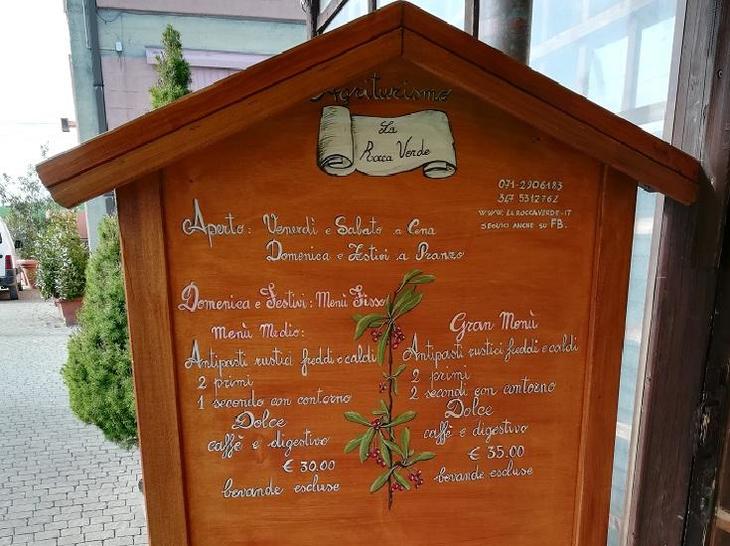 Agriturismo
La
Rocca Verde
071-2906183
347 5312762
www.laroccaverde.it
seguici anche su FB.
Aperto: Venerdì e Sabato a Cena
Domenica e Festivi a Pranzo
Domenica e Festivi: Menù Fisso
Menù Medio:
Antipasti rustici freddi e caldi
2 primi
1 secondo con contorno
Dolce
caffè e digestivo
€ 30.00
bevande escluse
Gran Menù
Antipasti rustici freddi e caldi
2 primi
2 secondi con contorno
Dolce
caffè e digestivo
€ 35.00
bevande escluse